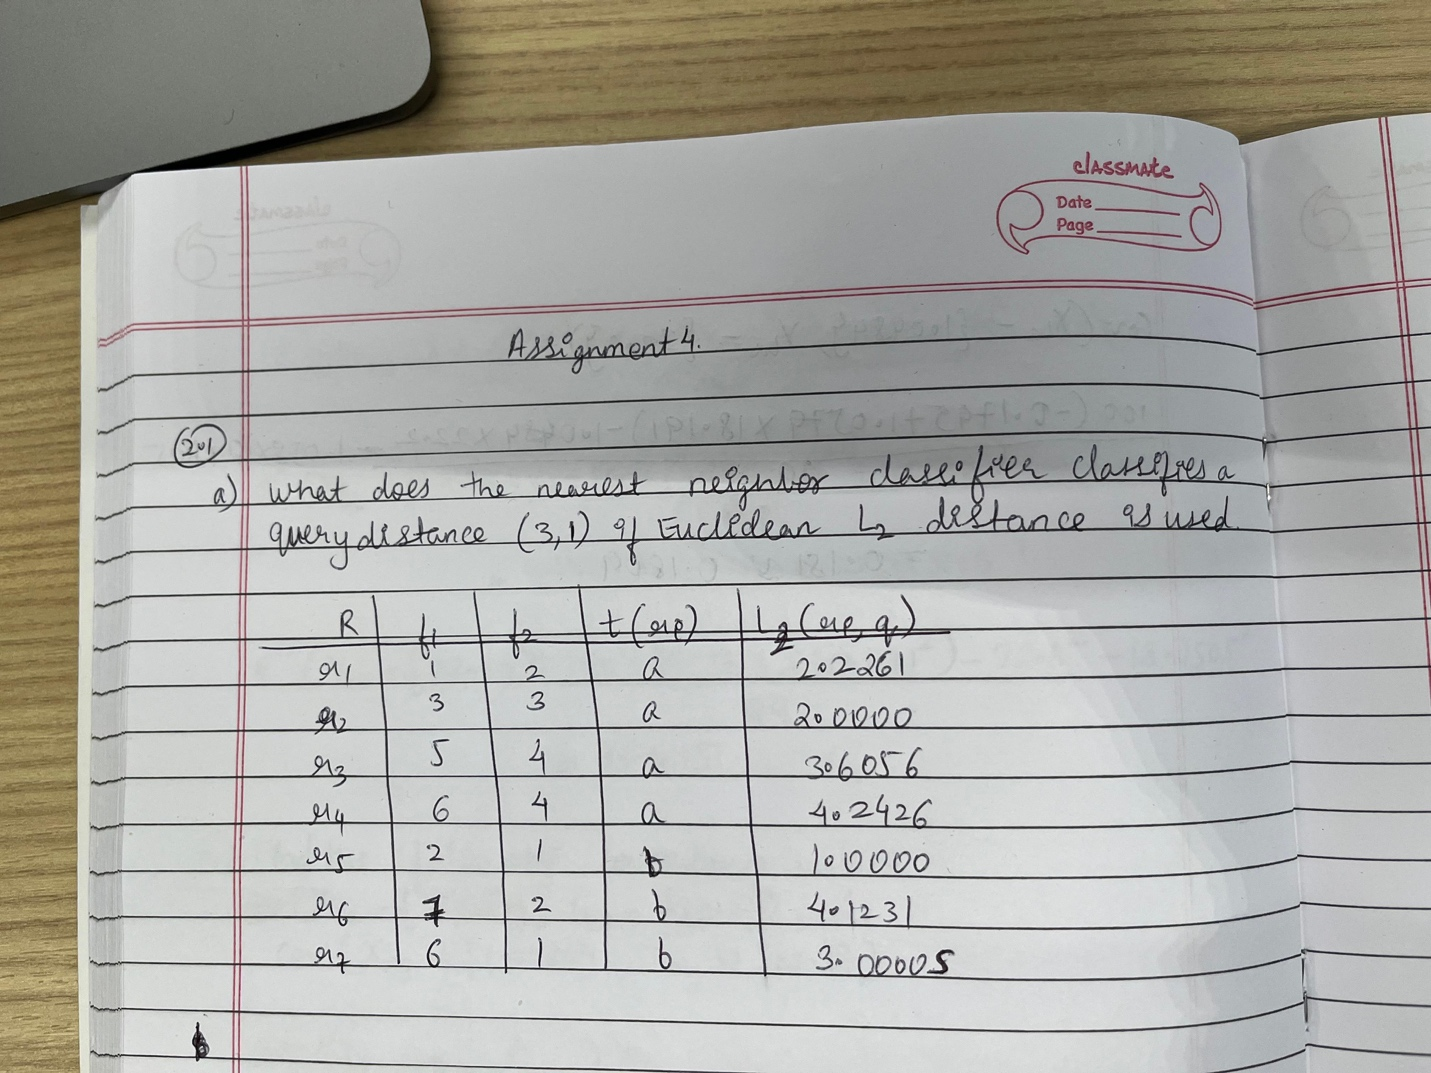 classmate
Date
Page
Assignment 4.
2.1
a) what does the nearest neighbor classifier classifies a
query distance (3,1) if Euclidean L2 distance is used
R f1 f2 t(rp) L2(rp, q)
r1 1 2 a 2.2261
r2 3 3 a 2.0000
r3 5 4 a 3.6056
r4 6 4 a 4.2426
r5 2 1 b 1.0000
r6 7 2 b 4.1231
r7 6 1 b 3.00005